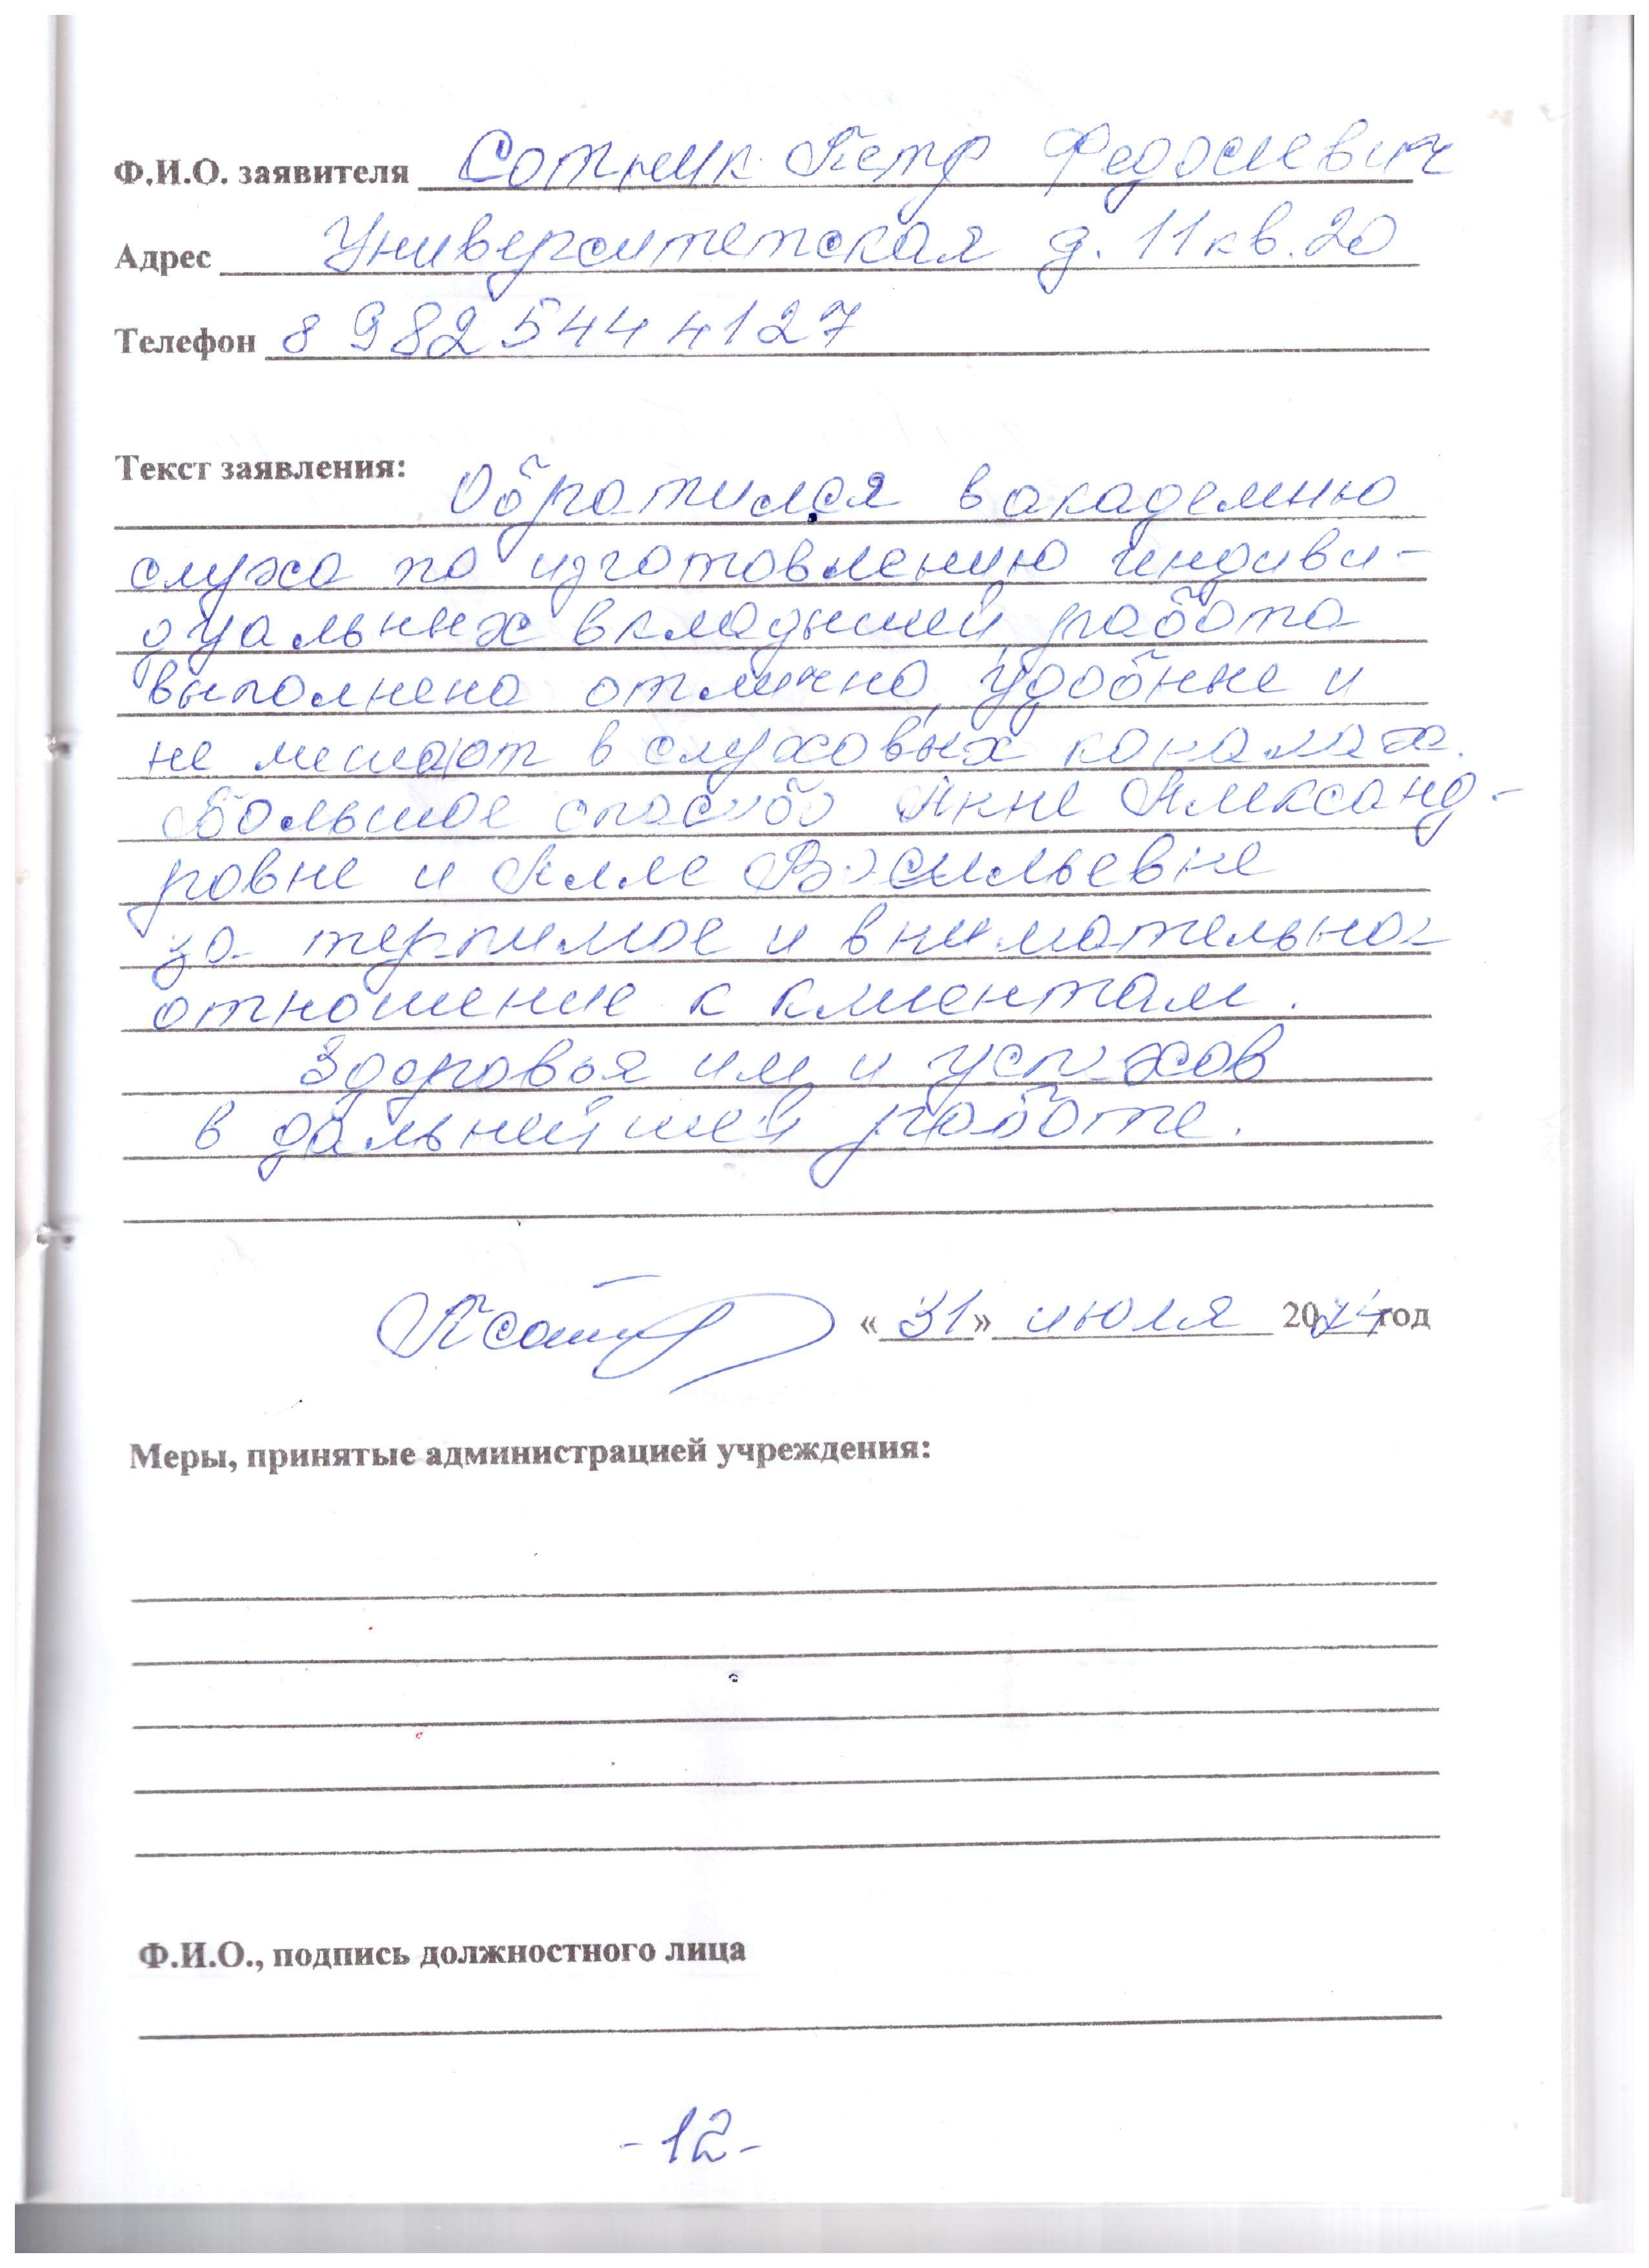 Ф.И.О. заявителя Сотник Петр Федосиевич
Адрес Университетская д. 11 кв. 20
Телефон 8 982 544 4127
Текст заявления:
Обратился в академию
слуха по изготовлению индиви-
дуальных вкладышей, работа
выполнена отлично, удобные и
не мешают в слуховых каналах.
Большое спасибо Анне Александ-
ровне и Алле Васильевне
за терпимое и внимательное
отношение к клиентам.
Здоровья им и успехов
в дальнейшей работе.
«31» июля 2024 год
Меры, принятые администрацией учреждения:
Ф.И.О., подпись должностного лица
-12-